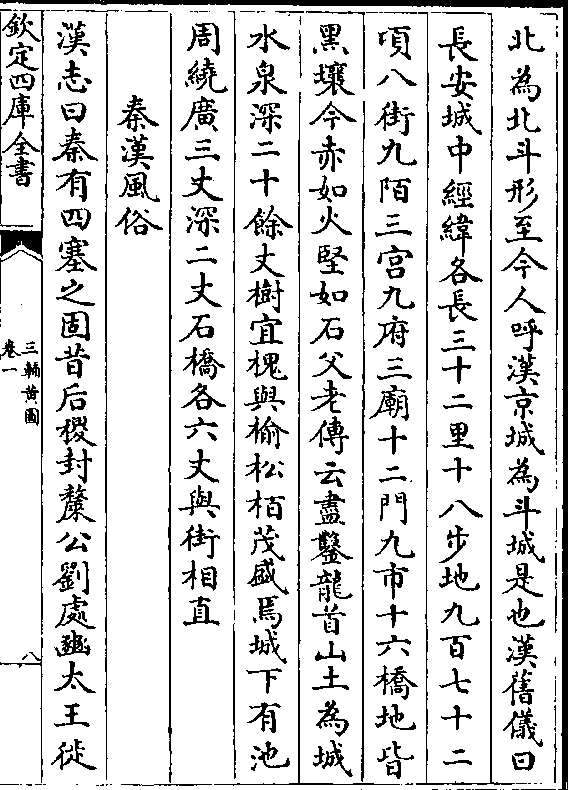 北為北斗形至今人呼漢京城為斗城是也漢舊儀曰
長安城中經緯各長三十二里十八步地九百七十二
頃八街九陌三宮九府三廟十二門九市十六橋地皆
黑壤今赤如火堅如石父老傳云盡鑿龍首山土為城
水泉深二十餘丈樹宜槐與榆松栢茂盛焉城下有池
周繞廣三丈深二丈石橋各六丈與街相直
秦漢風俗
漢志曰秦有四塞之固昔后稷封斄公劉處豳太王徙
欽定四庫全書
三輔黄圖
卷一
八